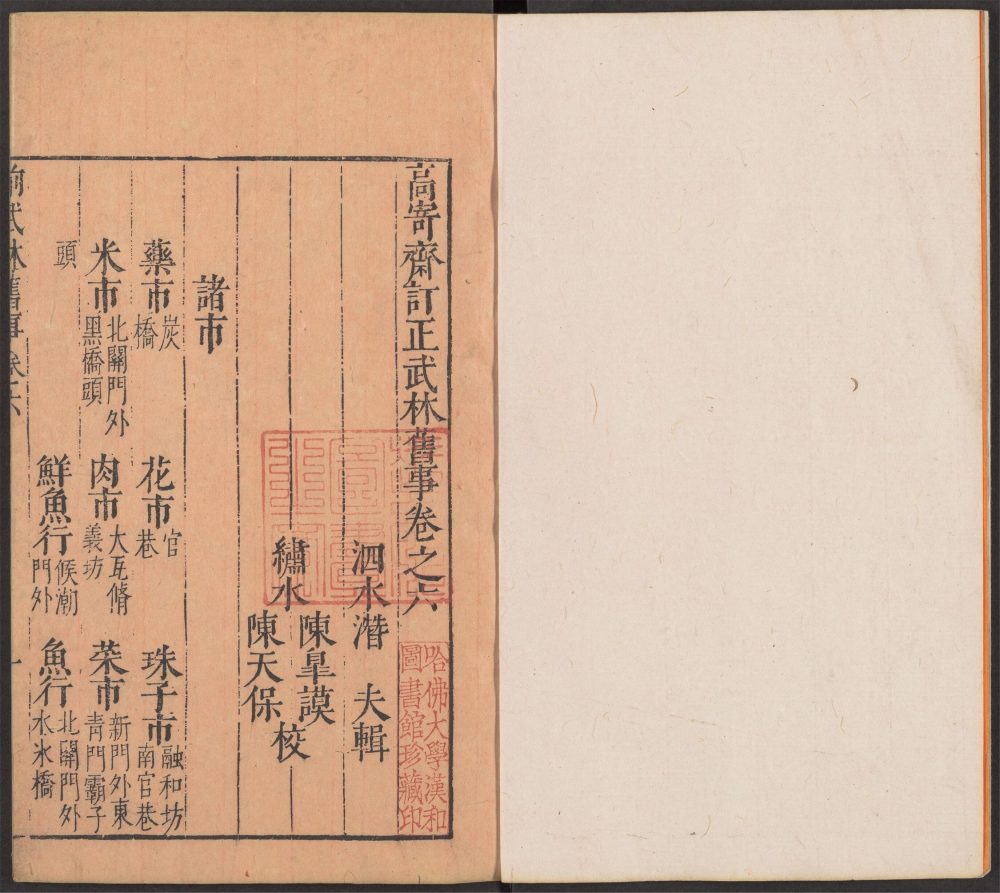 高寄齋訂正武林舊事卷之六
泗水潛　夫輯
繡水
陳臯謨
陳天保
校
諸市
藥市炭橋　花市官巷　珠子市融和坊南官巷
米市北關門外黑橋頭　肉市大瓦脩義坊　菜市新門外東青門霸子
頭　鮮魚行候潮門外　魚行北關門外水氷橋
武林舊事　卷六　一
哈佛大學漢和
圖書館珍藏印